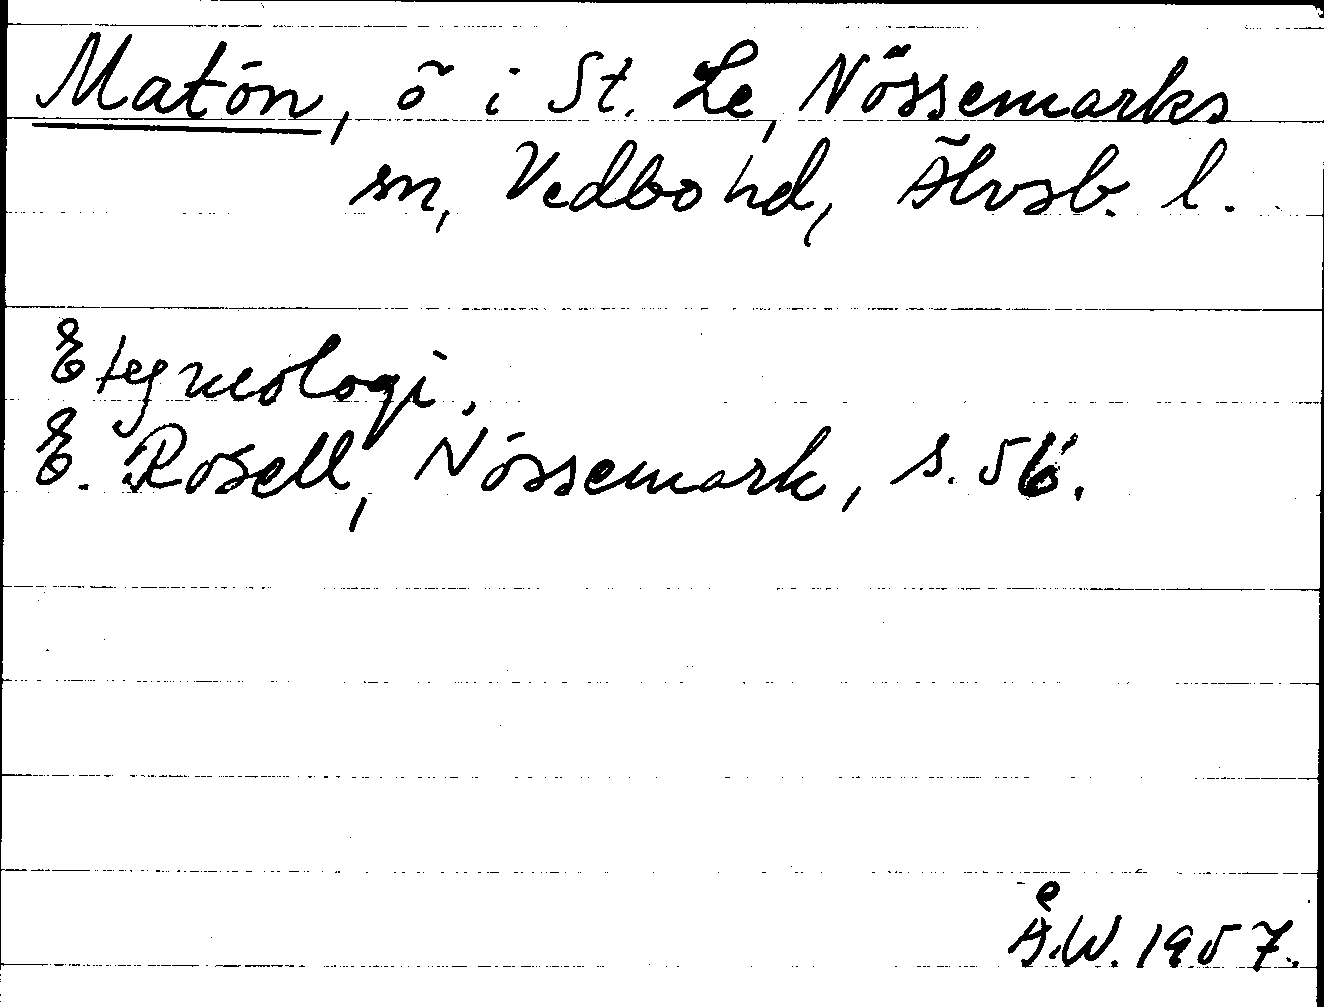 Matön, ö i St. Le, Nössemarks
sn, Vedbo hd, Älvsb. l.
Etymologi.
E. Rosell, Nössemark, s. 56.
Å.W. 1957.